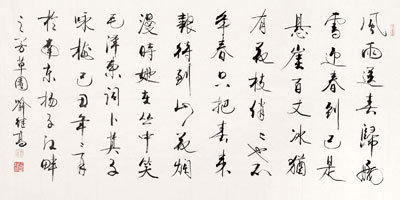 風雨送春歸飛
雪迎春到已是
懸崖百丈冰猶
有花枝俏〻也不
爭春只把春來
報待到山花爛
漫時她在丛中笑
毛澤東詞卜算子
咏梅己丑年月
於南京揚子江畔
之芳草園喻继高